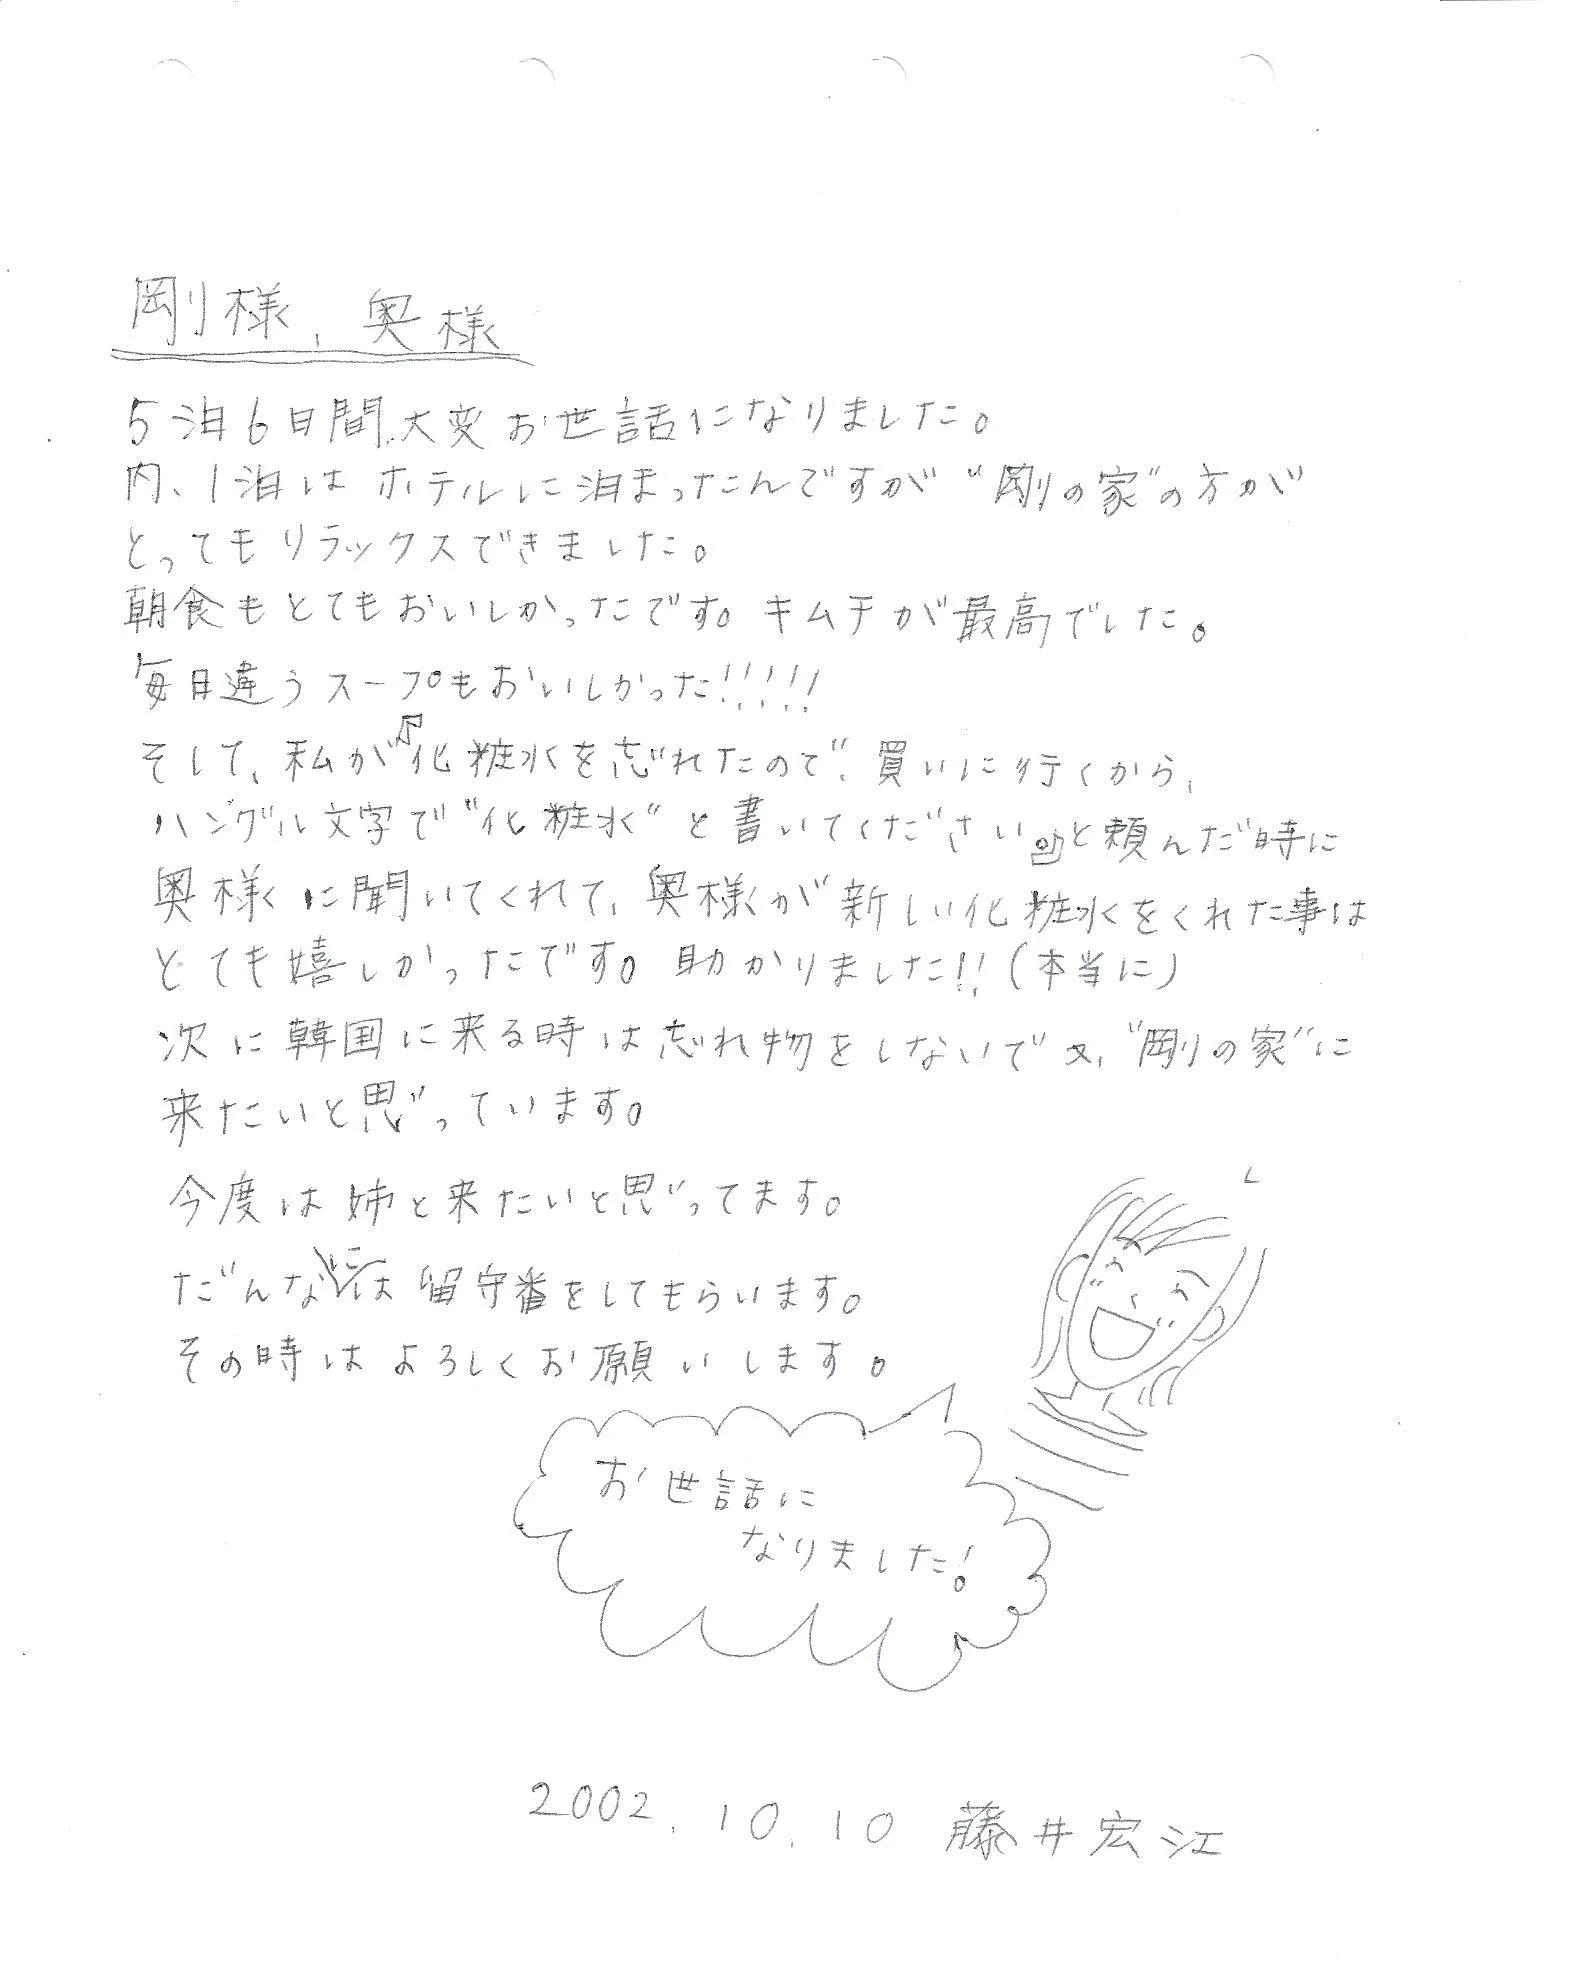 剛様、奥様
5泊6日間、大変お世話になりました。
内、1泊はホテルに泊まったんですが“剛の家”の方が
とってもリラックスできました。
朝食もとてもおいしかったです。キムチが最高でした。
毎日違うスープもおいしかった!!!!!
そして、私が化粧水を忘れたので、買いに行くから、
ハングル文字で“化粧水”と書いてくださいと頼んだ時に
奥様に聞いてくれて、奥様が新しい化粧水をくれた事は
とても嬉しかったです。助かりました!!(本当に)
次に韓国に来る時は忘れ物をしないで又、“剛の家”に
来たいと思っています。
今度は姉と来たいと思ってます。
だんなには留守番をしてもらいます。
その時はよろしくお願いします。
お世話に
なりました!
2002.10.10 藤井宏江